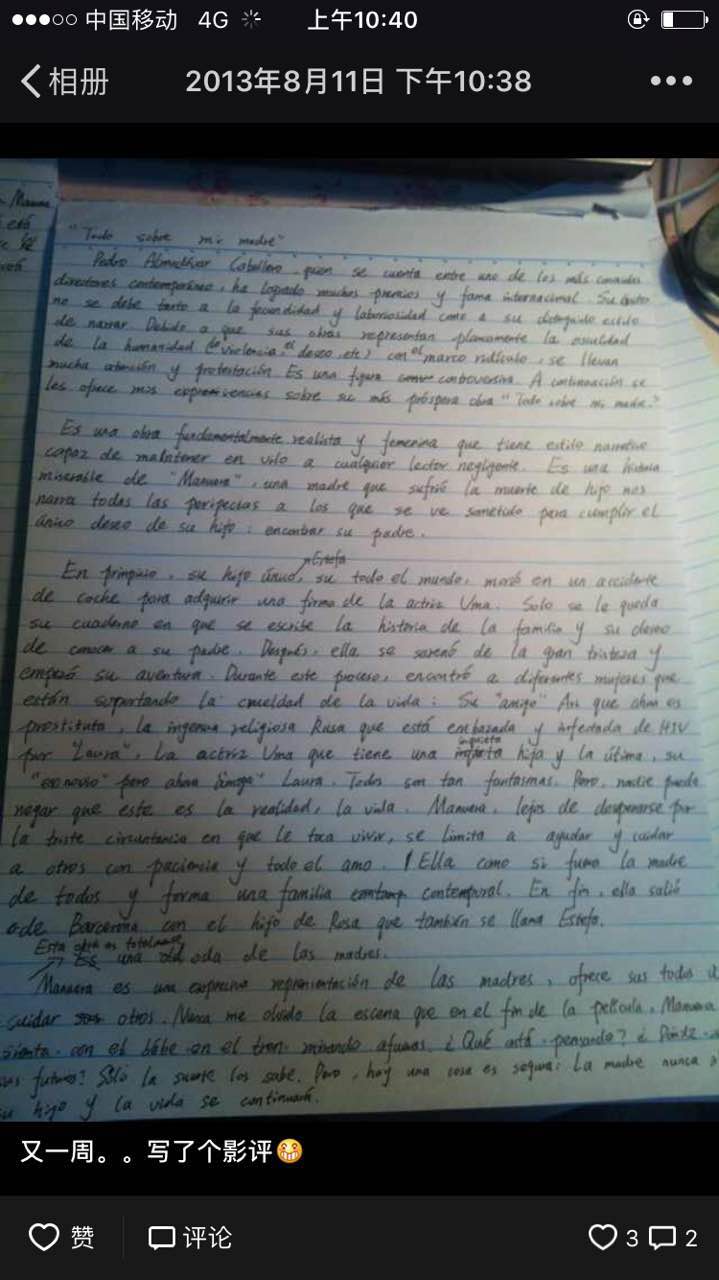 中国移动 4G 上午10:40
相册 2013年8月11日 下午10:38
"Todo sobre mi madre"
Pedro Almodóvar Caballero, quien se cuenta entre uno de los más
directores contemporáneo, ha logrado muchos premios y fama internacional. Su éxito
no se debe tanto a la fecundidad y laboriosidad como a su distinguido estilo
de narrar. Debido a que sus obras representan planamente la
de la humanidad (la violencia, el deseo, etc) con el marco ridículo, se llevan
mucha atención y protestación. Es una figura controversiva. A continuación se
les ofrece más sobre su más próspera obra "Todo sobre mi madre."
Es una obra fundamentalmente realista y femenina que tiene estilo narrativo
capaz de maintener en vilo a cualquier lector negligente. Es una historia
miserable de "Manuera", una madre que sufrió la muerte de hijo nos
narra todas las peripecias a los que se ve sometido para cumplir el
único deseo de su hijo: encontrar su padre.
Estefa
En principio, su hijo único, su todo el mundo, murió en un accidente
de coche para adquirir una firma de la actriz Uma. Solo se le queda
su cuaderno en que se escribe la historia de la familia y su deseo
de conocer a su padre. Después, ella se serenó de la gran tristeza y
empezó su aventura. Durante este proceso, encontró a diferentes mujeres que
están soportando la crueldad de la vida: Su "amigo" An que ahora es
prostituta, la ingenua religiosa Rosa que está embarazada y infectada de HIV
por "Laura", La actriz Uma que tiene una inquieta hija y la útima, su
"exnovio" pero ahora "amiga" Laura. Todos son tan fantasmas. Pero, nadie pueda
negar que este es la realidad, la vida. Manuera, lejos de desperarse por
la triste circunstancia en que le toca vivir, se limita a ayudar y cuidar
a otros con paciencia y todo el amo. Ella como si fuera la madre
de todos y forma una familia contemporal. En fin, ella salió
de Barcerona con el hijo de Rosa que también se llama Estefa.
Esta obra es totalmente
una oda de las madres.
Manuera es una expresiva representación de las madres, ofrece sus todos a
cuidar otros. Nunca me olvido la escena que en el fin de la película, Manuera
sienta con el bébe en el tren mirando afueras. ¿Qué está pensando? ¿Dónde
sus futuros? Sólo la suerte los sabe. Pero, hay una cosa es segura: La madre nunca
su hijo y la vida se continuará.
又一周。。写了个影评😁
赞 评论 3 2